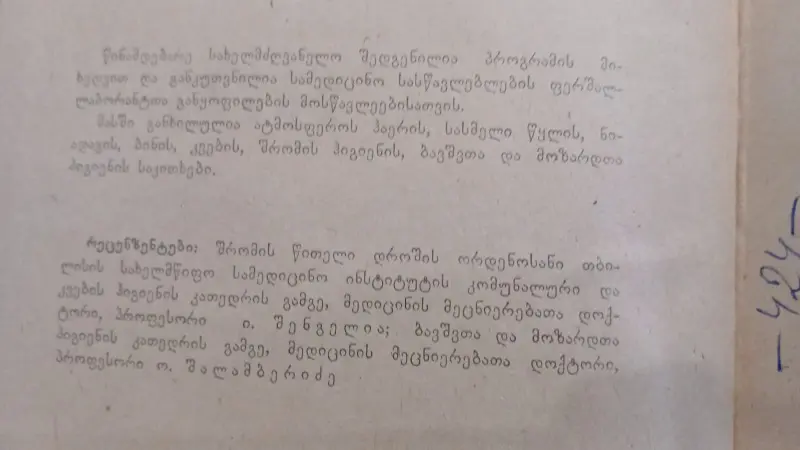 წინამდებარე სახელმძღვანელო შედგენილია პროგრამის მი-
ხედვით და განკუთვნილია სამედიცინო სასწავლებლების ფერშალ-
ლაბორანტთა განყოფილების მოსწავლეებისათვის.
მასში განხილულია ატმოსფეროს ჰაერის, სასმელი წყლის, ნი-
ადაგის, ბინის, კვების, შრომის ჰიგიენის, ბავშვთა და მოზარდთა
ჰიგიენის საკითხები.
რეცენზენტები: შრომის წითელი დროშის ორდენოსანი თბი-
ლისის სახელმწიფო სამედიცინო ინსტიტუტის კომუნალური და
კვების ჰიგიენის კათედრის გამგე, მედიცინის მეცნიერებათა დოქ-
ტორი, პროფესორი ი. შენგელია; ბავშვთა და მოზარდთა
ჰიგიენის კათედრის გამგე, მედიცინის მეცნიერებათა დოქტორი,
პროფესორი ო. შალამბერიძე
-424-